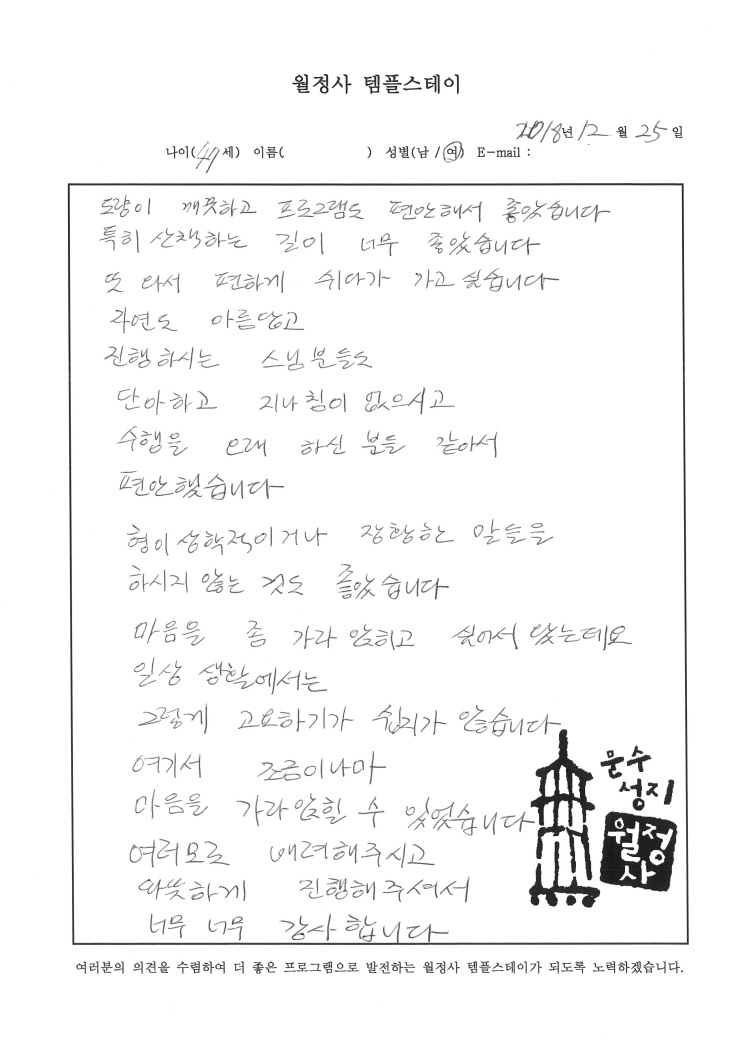 월정사 템플스테이
2018년 12월 25일
나이(47세) 이름( ) 성별(남 / 여) E-mail :
도량이 깨끗하고 프로그램도 편안해서 좋았습니다
특히 산책하는 길이 너무 좋았습니다
또 와서 편하게 쉬다가 가고 싶습니다
자연도 아름답고
진행하시는 스님분들도
단아하고 지나침이 없으시고
수행을 오래 하신 분들 같아서
편안했습니다
형이상학적이거나 장황한 말들을
하시지 않는 것도 좋았습니다
마음을 좀 가라앉히고 싶어서 왔는데요
일상 생활에서는
그렇게 고요하기가 쉽지가 않습니다
여기서 조금이나마
마음을 가라앉힐 수 있었습니다
여러모로 배려해주시고
따뜻하게 진행해주셔서
너무 너무 감사합니다
문수
성지
월정
사
여러분의 의견을 수렴하여 더 좋은 프로그램으로 발전하는 월정사 템플스테이가 되도록 노력하겠습니다.